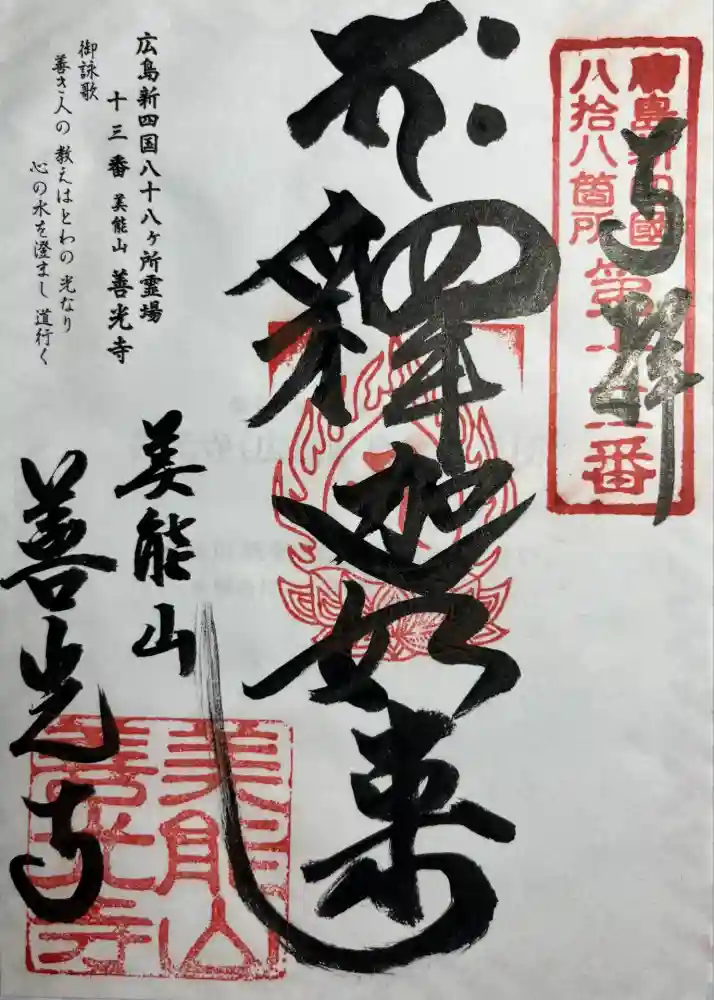 奉拝
廣島新四國
八拾八箇所
第十三番
釋迦如来
広島新四国八十八ヶ所霊場
十三番 美能山 善光寺
御詠歌
善き人の 教えはとわの 光なり
心の水を澄まし 道行く
美能山
善光寺
美能山
善光寺